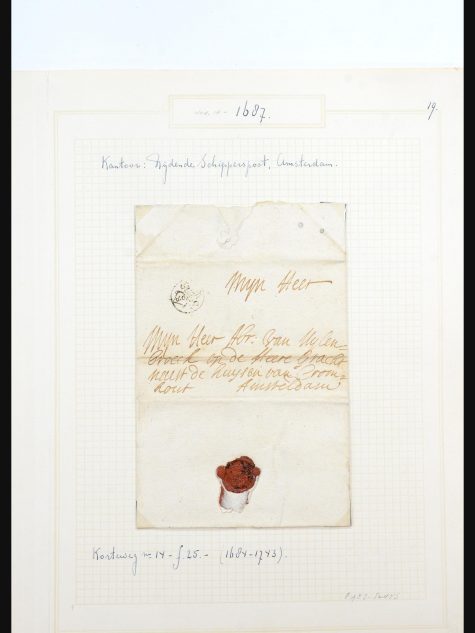 1687.
19.
Kantoor: Rijdende Schipperspost, Amsterdam.
Mijn Heer
Mijn Heer Hr. van Uylen=
broeck op de Heere Gracht
naest de huysen van Crom=
hout Amsterdam
Korteweg no. 14 - f 25.- (1684-1743).